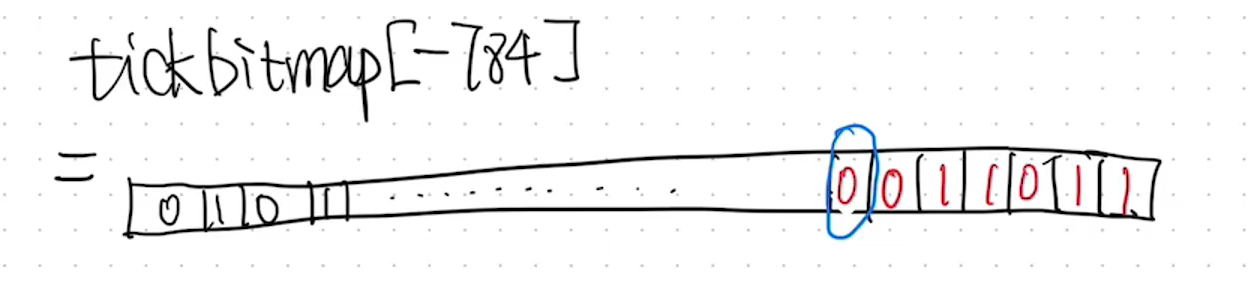 tickbitmap[-784]
=
0 1 0 1 ........ 0 0 1 1 0 1 1